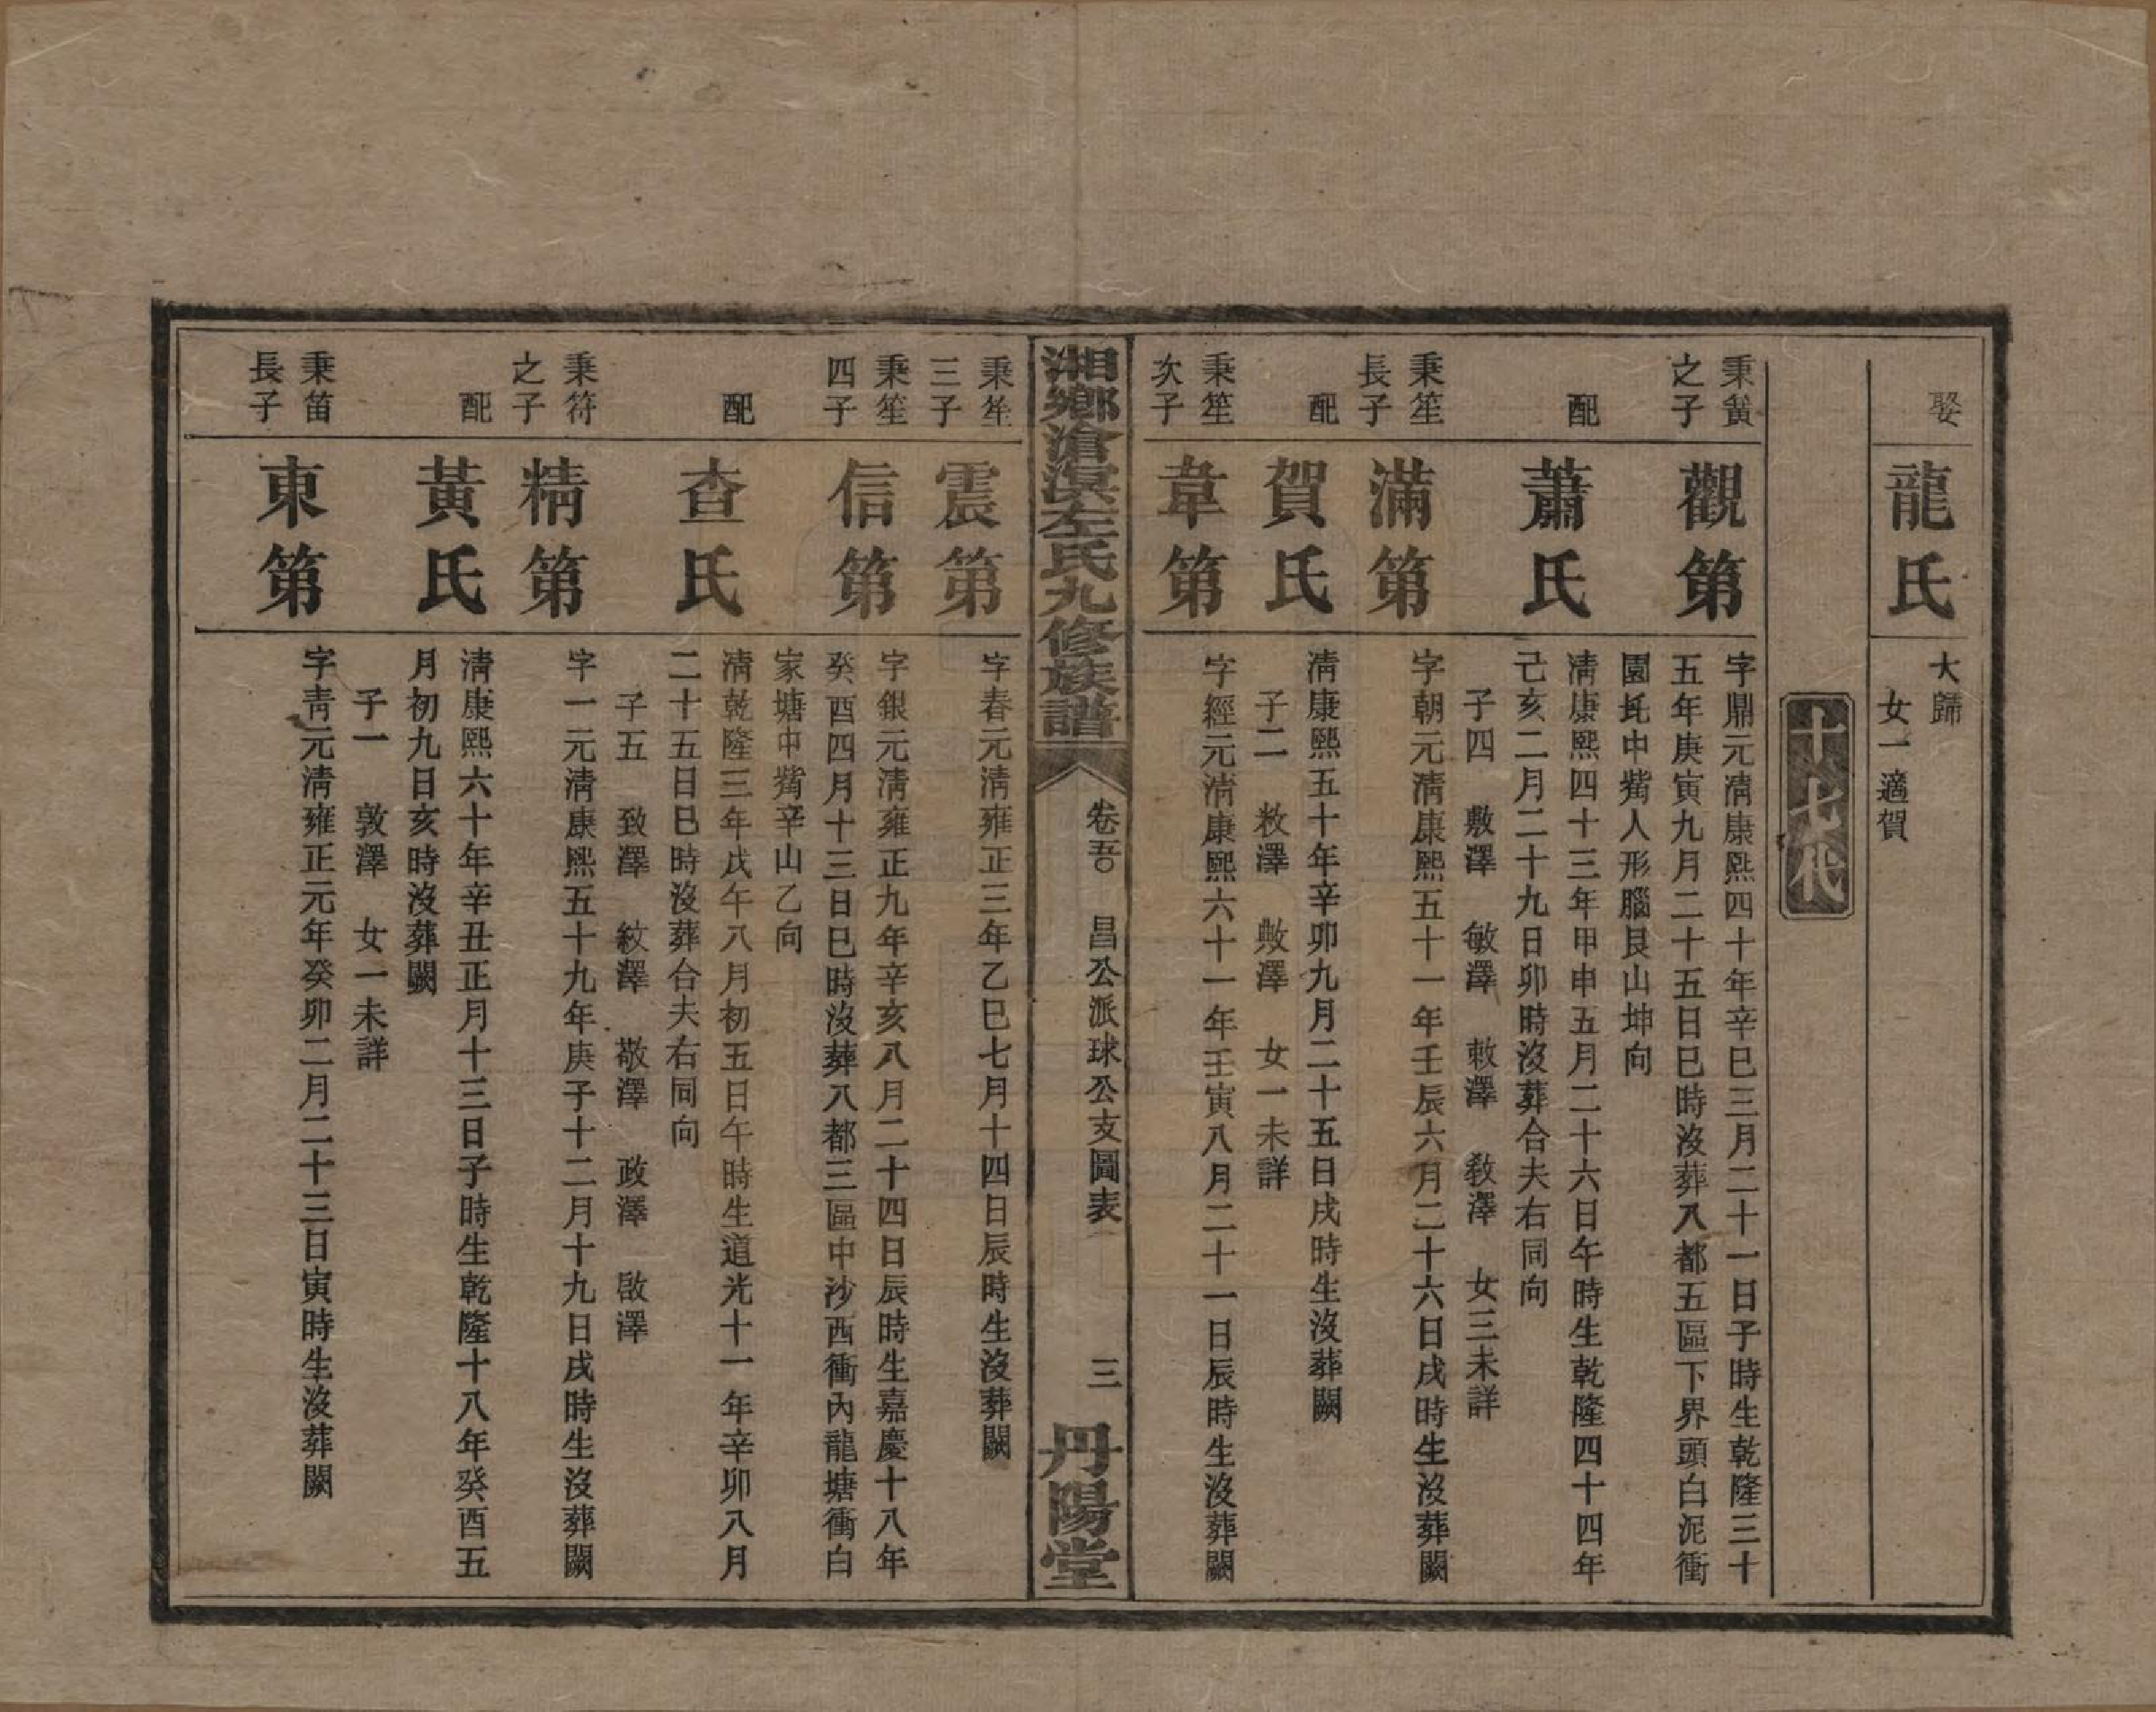 娶
龍氏
大歸
女一適賀
十七代
秉簧
之子
觀第
字鼎元清康熙四十年辛巳三月二十一日子時生乾隆三十
五年庚寅九月二十五日巳時沒葬八都五區下界頭白泥衝
園圫中觜人形腦艮山坤向
配
蕭氏
清康熙四十三年甲申五月二十六日午時生乾隆四十四年
己亥二月二十九日卯時沒葬合夫右同向
子四 敷澤 敏澤 敕澤 敎澤 女三未詳
秉笙
長子
滿第
字朝元清康熙五十一年壬辰六月二十六日戌時生沒葬闕
配
賀氏
清康熙五十年辛卯九月二十五日戌時生沒葬闕
子二 敉澤 敟澤 女一未詳
秉笙
次子
韋第
字經元清康熙六十一年壬寅八月二十一日辰時生沒葬闕
湘鄉滄溟左氏九修族譜
卷五 昌公派球公支圖表 三
丹陽堂
秉笙
三子
震第
字春元清雍正三年乙巳七月十四日辰時生沒葬闕
秉笙
四子
信第
字銀元清雍正九年辛亥八月二十四日辰時生嘉慶十八年
癸酉四月十三日巳時沒葬八都三區中沙西衝內龍塘衝白
家塘中觜辛山乙向
配
查氏
清乾隆三年戊午八月初五日午時生道光十一年辛卯八月
二十五日巳時沒葬合夫右同向
子五 致澤 紋澤 敬澤 政澤 啟澤
秉符
之子
精第
字一元清康熙五十九年庚子十二月十九日戌時生沒葬闕
配
黃氏
清康熙六十年辛丑正月十三日子時生乾隆十八年癸酉五
月初九日亥時沒葬闕
子一 敦澤 女一未詳
秉笛
長子
東第
字靑元清雍正元年癸卯二月二十三日寅時生沒葬闕